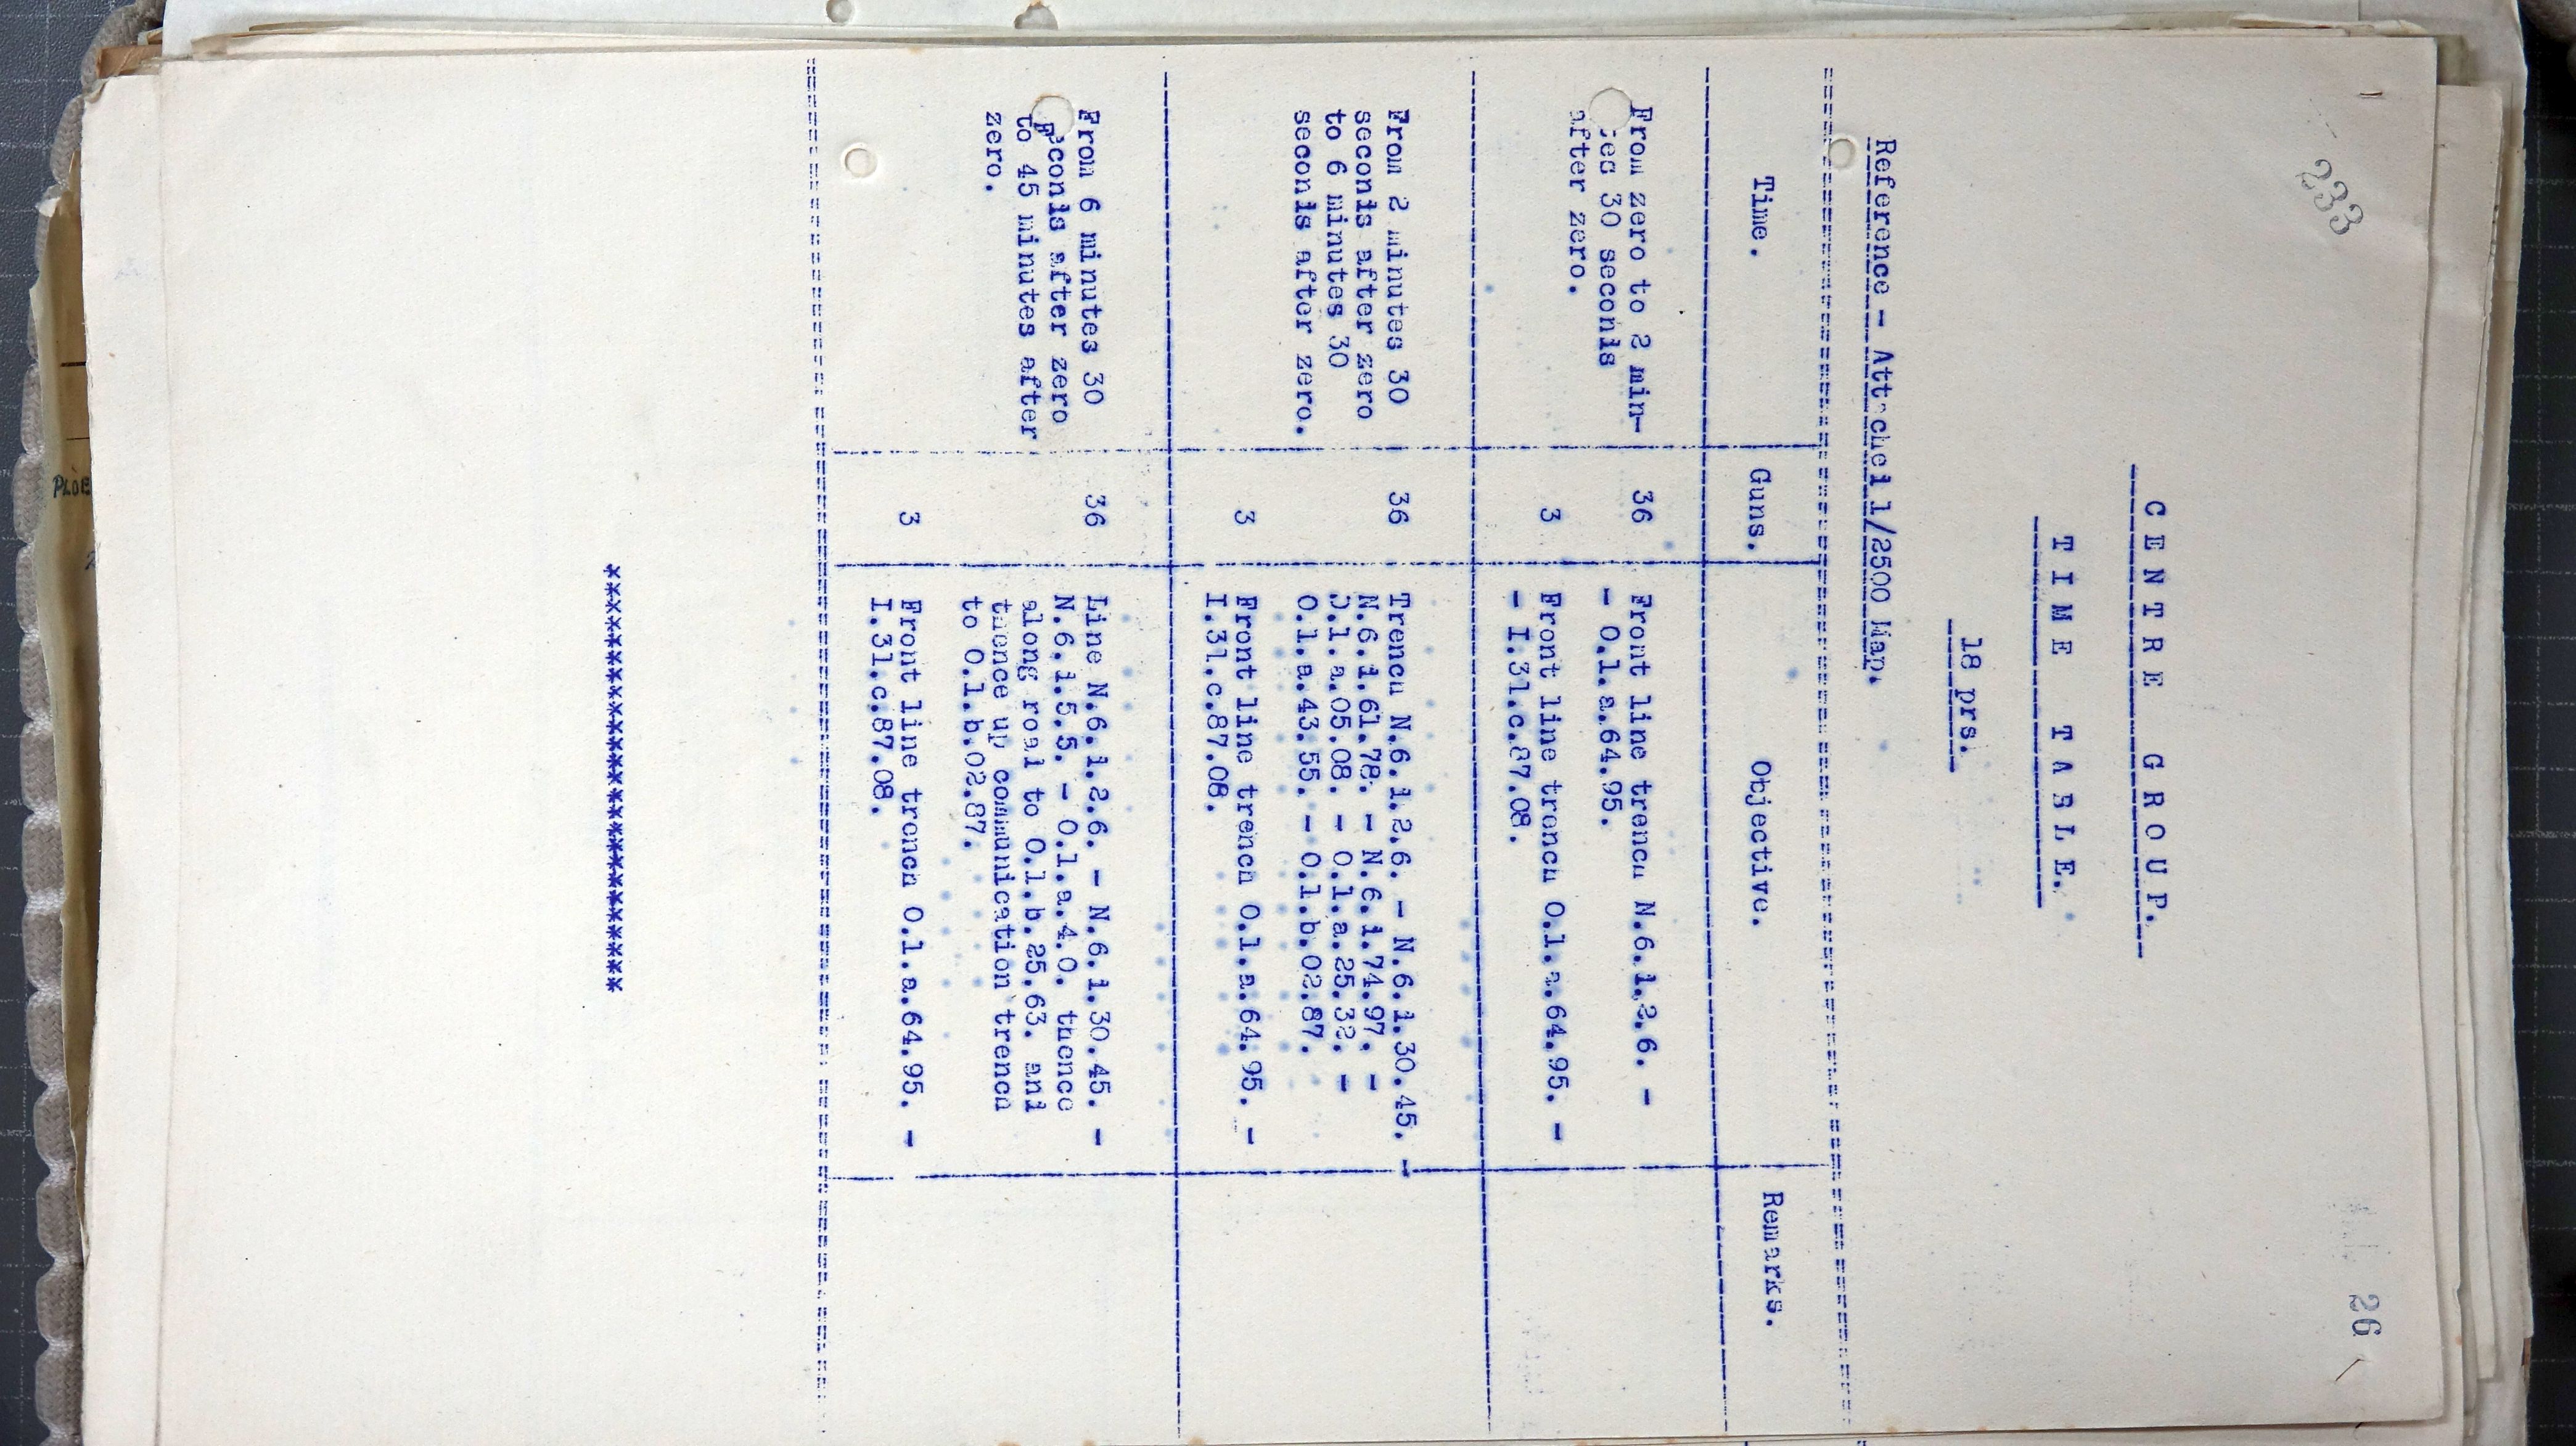 233
26
CENTRE GROUP.
TIME TABLE.
18 prs.
Reference - Attached 1/2500 Map.
Time. Guns. Objective. Remarks.
From zero to 2 min- 36 Front line trench N.6.1.2.6. -
30 seconds - O.1.a.64.95.
after zero. 3 Front line trench O.1.a.64.95. -
- I.31.c.87.08.
From 2 minutes 30 36 Trench N.6.1.2.6. - N.6.1.30.45. -
seconds after zero N.6.1.61.78. - N.6.1.74.97. -
to 6 minutes 30 O.1.a.05.08. - O.1.a.25.32. -
seconds after zero. O.1.a.43.55. - O.1.b.02.87.
3 Front line trench O.1.a.64.95. -
I.31.c.87.08.
From 6 minutes 30 36 Line N.6.1.2.6. - N.6.1.30.45. -
seconds after zero N.6.1.5.5. - O.1.a.4.0. thence
to 45 minutes after along road to O.1.b.25.63. and
zero. thence up communication trench
to O.1.b.02.87.
3 Front line trench O.1.a.64.95. -
I.31.c.87.08.